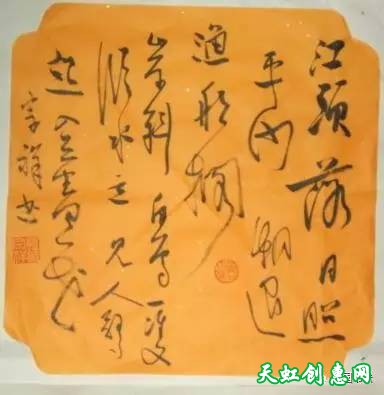 江頭落日照
平沙潮退
渔船搁
岸斜白鸟一双
临水立见人惊
起入芦花
祥书
天虹创惠网